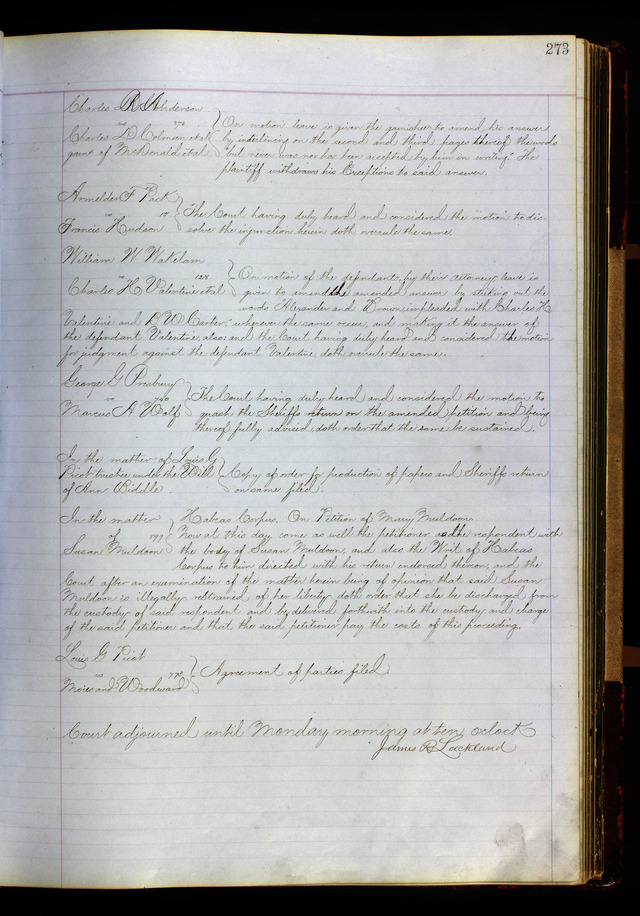 273
Charles R Anderson
vs 276
Charles D Colman et al
garns of McDonald et al
On motion leave is given the garnishee to amend his answer
by interlining on the second and third pages thereof the words
"but never was nor has been accepted by him in writing." The
plaintiff withdraws his Exceptions to said answer.
Armelder F Picot
vs
Francis Hudson
The Court having duly heard and considered the motion to dis-
solve the injunction herein doth overrule the same.
William W Wakelam
vs 128
Charles H Valentine et al
On motion of the defendants, by their attorney, leave is
given to amend the amended answer by striking out the
words "Alexander and Brown impleaded with Charles H
Valentine and D W Carter," wherever the same occur, and making it the answer of
the defendant Valentine, also; and the Court having duly heard and considered the motion
for judgment against the defendant Valentine doth overrule the same.
George G Presbury
vs 740
Marcus A Wolf
The Court having duly heard and considered the motion to
quash the Sheriffs return on the amended petition and being
thereof fully advised doth order that the same be sustained.
In the matter of Louis G
Picot trustee under the Will
of Ann Biddle.
Copy of order for production of papers and Sheriffs return
on same filed.
In the matter
of 799
Susan Muldoon
Habeas Corpus. On Petition of Mary Muldoon.
Now at this day come as well the petitioner as the respondent with
the body of Susan Muldoon, and also the Writ of Habeas
Corpus to him directed with his return endorsed thereon, and the
Court after an examination of the matter herein being of opinion that said Susan
Muldoon is illegally restrained of her liberty doth order that she be discharged from
the custody of said respondent and by delivered forthwith into the custody and charge
of the said petitioner and that the said petitioner pay the costs of this proceeding.
Louis G Picot
vs
Moies and Woodward
Agreement of parties filed
Court adjourned until Monday morning at ten oclock
James R Lackland